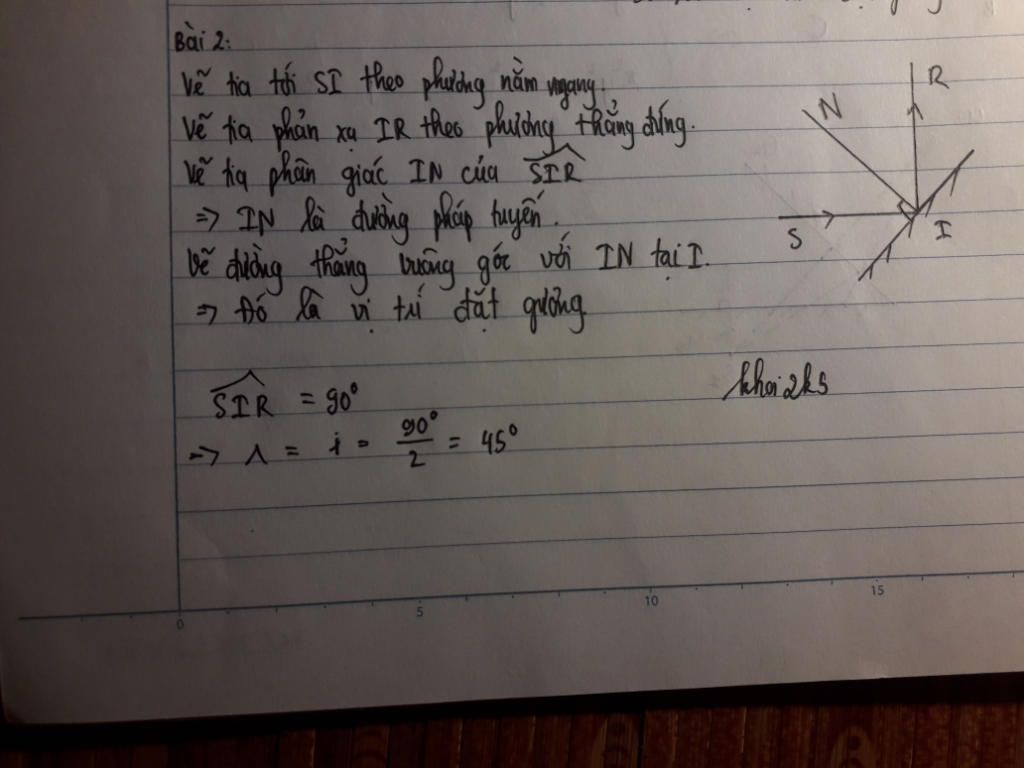 Bài 2:
Vẽ tia tới SI theo phương nằm ngang.
Vẽ tia phản xạ IR theo phương thẳng đứng.
Vẽ tia phân giác IN của SIR
=> IN là đường pháp tuyến.
Vẽ đường thẳng vuông góc với IN tại I.
=> Đó là vị trí đặt gương
R
N
S
I
SIR = 90°
=> λ = i = 90°/2 = 45°
khoi2k5
0 5 10 15